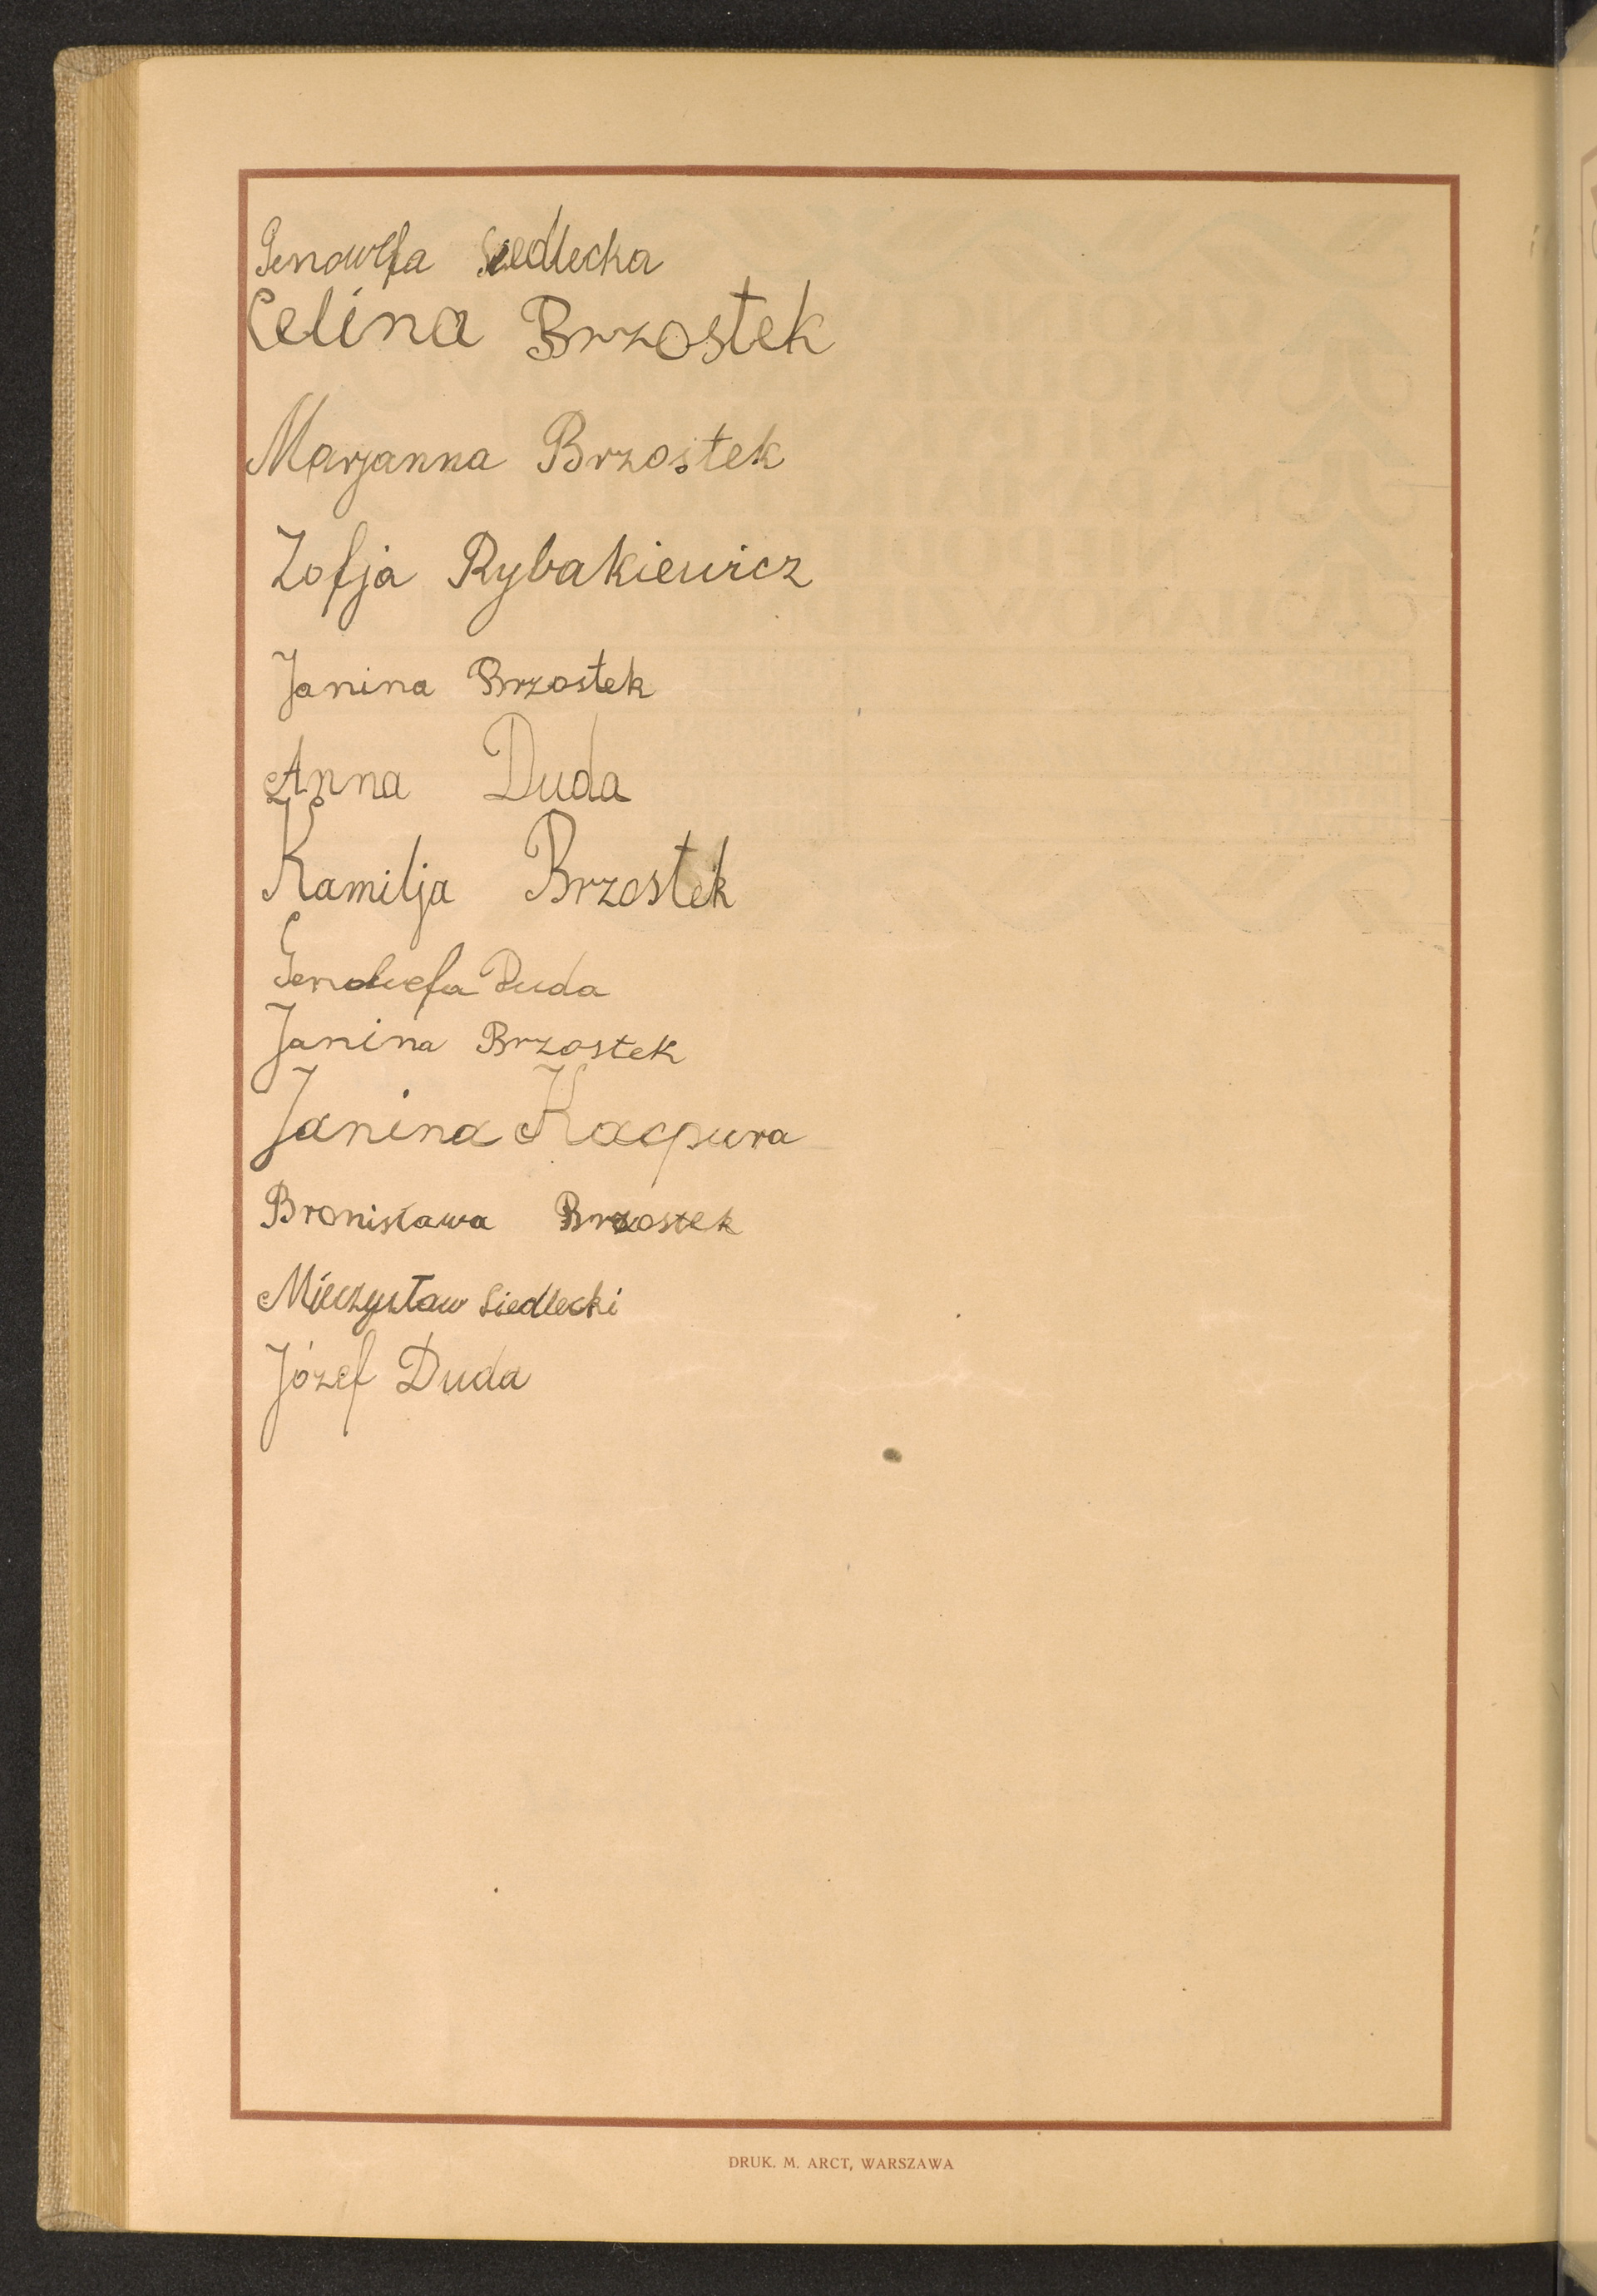 Genowefa Siedlecka
Celina Brzostek
Marjanna Brzostek
Zofja Rybakiewicz
Janina Brzostek
Anna Duda
Kamilja Brzostek
Genowefa Duda
Janina Brzostek
Janina Kacpura
Bronisława Brzostek
Mieczysław Siedlecki
Józef Duda
DRUK. M. ARCT, WARSZAWA